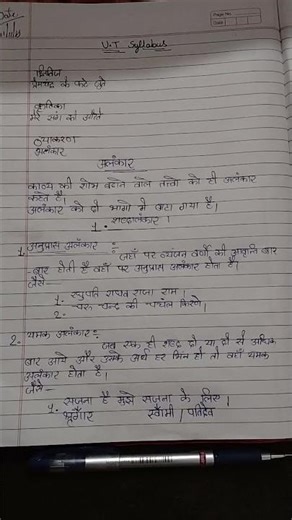 Date
Page No.
Date
U.T Syllabus
क्षितिज
प्रेमचंद के फटे जूते
कृतिका
मेरे संग की औरतें
व्याकरण
अलंकार
अलंकार
काव्य की शोभा बढ़ाने वाले तत्वों को ही अलंकार
कहते है।
अलंकार को दो भागो में बाटा गया है।
1. शब्दालंकार ।
1. अनुप्रास अलंकार :- जहाँ पर व्यंजन वर्णो की आवृति बार
-बार होती है वहाँ पर अनुप्रास अलंकार होता है।
जैसे-
1. रघुपति राघव राजा राम ।
2. चारू चन्द्र की चंचल किरणे ।
2- यमक अलंकार :- जब एक ही शब्द दो या दो से अधिक
बार आये और उसके अर्थ हर भिन्न हो तो वहाँ यमक
अलंकार होता है।
जैसे-
1. सजना है मुझे सजना के लिए ।
श्रृंगार स्वामी / पतिदेव